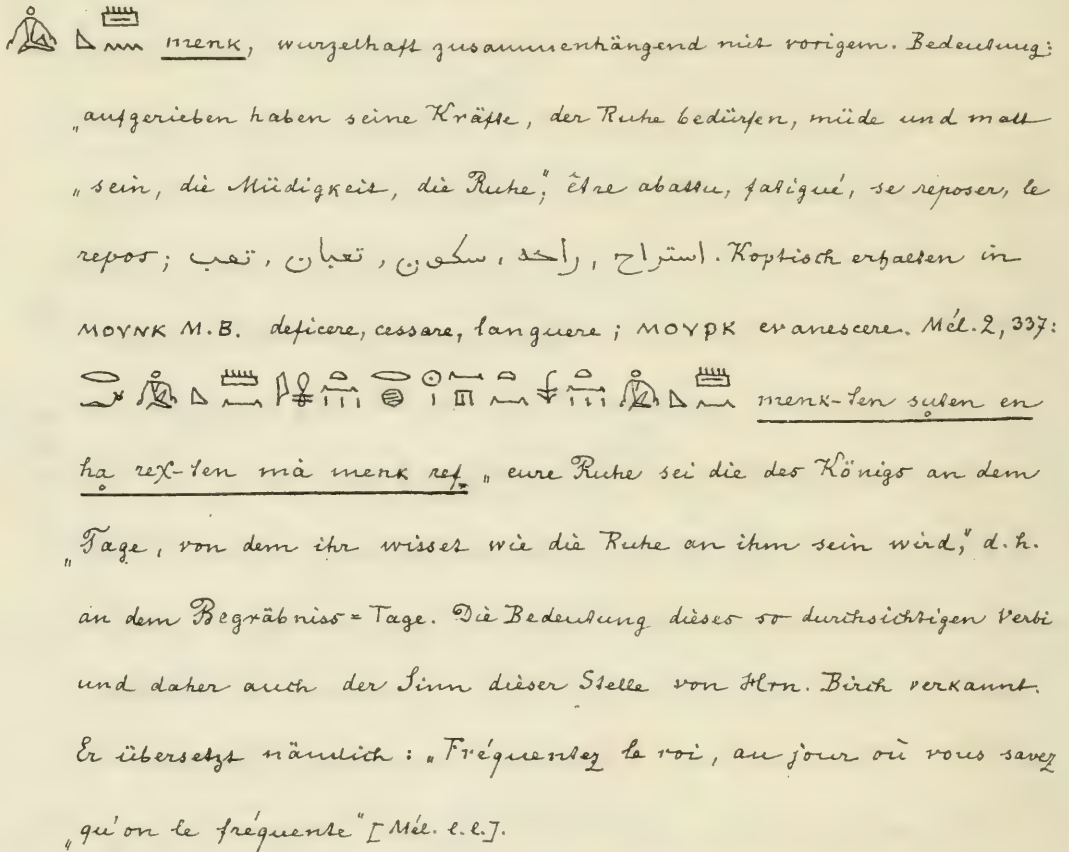 menk, wurzelhaft zusammenhängend mit vorigem. Bedeutung:
„aufgerieben haben seine Kräfte, der Ruhe bedürfen, müde und matt
„sein, die Müdigkeit, die Ruhe," être abattu, fatigué, se reposer, le
repos; استراح, راحة, سكون, تعبان, تعب. Koptisch erhalten in
ⲙⲟⲩⲛⲕ M.B. deficere, cessare, languere; ⲙⲟⲩⲣⲕ evanescere. Mél. 2, 337:
menk-ten suten en
ha reχ-ten mà menk ref „eure Ruhe sei die des Königs an dem
„Tage, von dem ihr wisset wie die Ruhe an ihm sein wird," d.h.
an dem Begräbniss=Tage. Die Bedeutung dieses so durchsichtigen Verbi
und daher auch der Sinn dieser Stelle von Hrn. Birch verkannt.
Er übersetzt nämlich: „Fréquentez le roi, au jour où vous savez
„qu'on le fréquente" [Mél. l.l.].